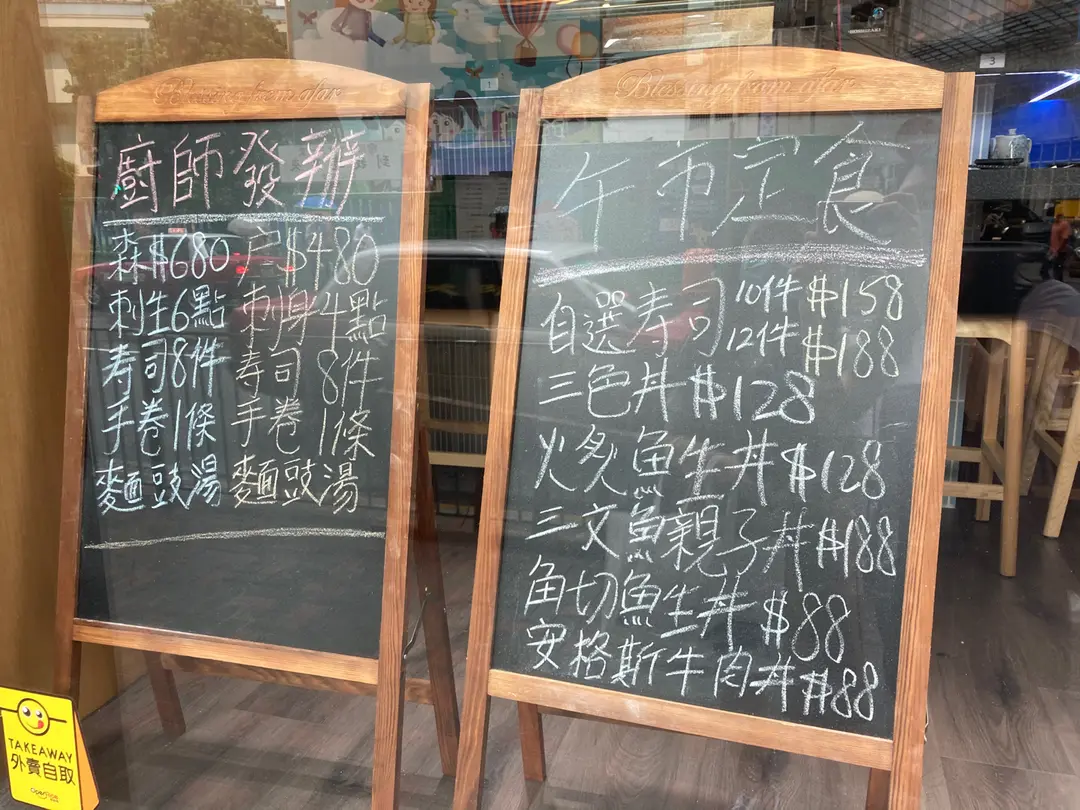 Blessing from afar
廚師發辦
森$680 戶$480
刺生6點 刺身4點
寿司8件 寿司8件
手卷1條 手卷1條
麵豉湯 麵豉湯
Blessing from afar
午市定食
自選寿司 10件 $158
12件 $188
三色丼 $128
火炙魚生丼 $128
三文魚親子丼 $188
角切魚生丼 $88
安格斯牛肉丼 $88
TAKEAWAY
外賣自取
OpenRice
3
1